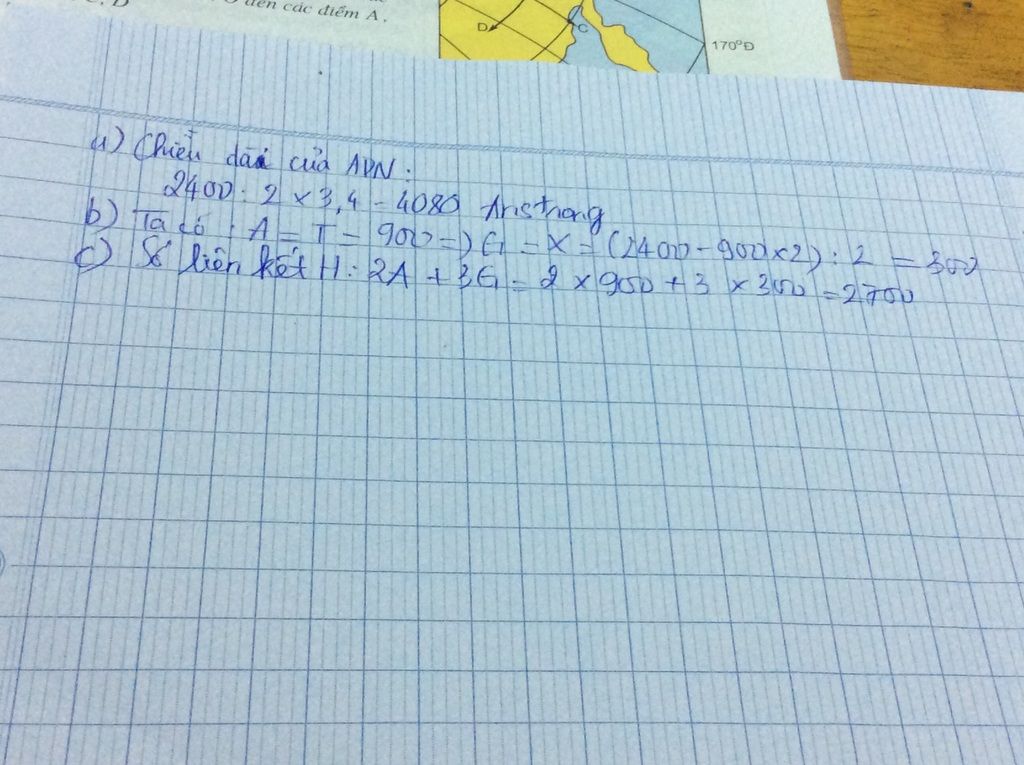 đến các điểm A,
D
C
170°Đ
a) Chiều dài của ADN:
2400 : 2 x 3,4 = 4080 Aristrong
b) Ta có : A = T = 900 => G = X = (2400 - 900x2) : 2 = 300
c) Số liên kết H : 2A + 3G = 2 x 900 + 3 x 300 = 2700